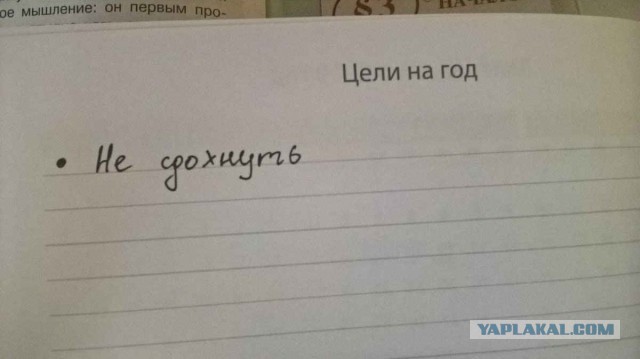 ое мышление: он первым про-
§ 3
Цели на год
• Не сдохнуть
YAPLAKAL.COM